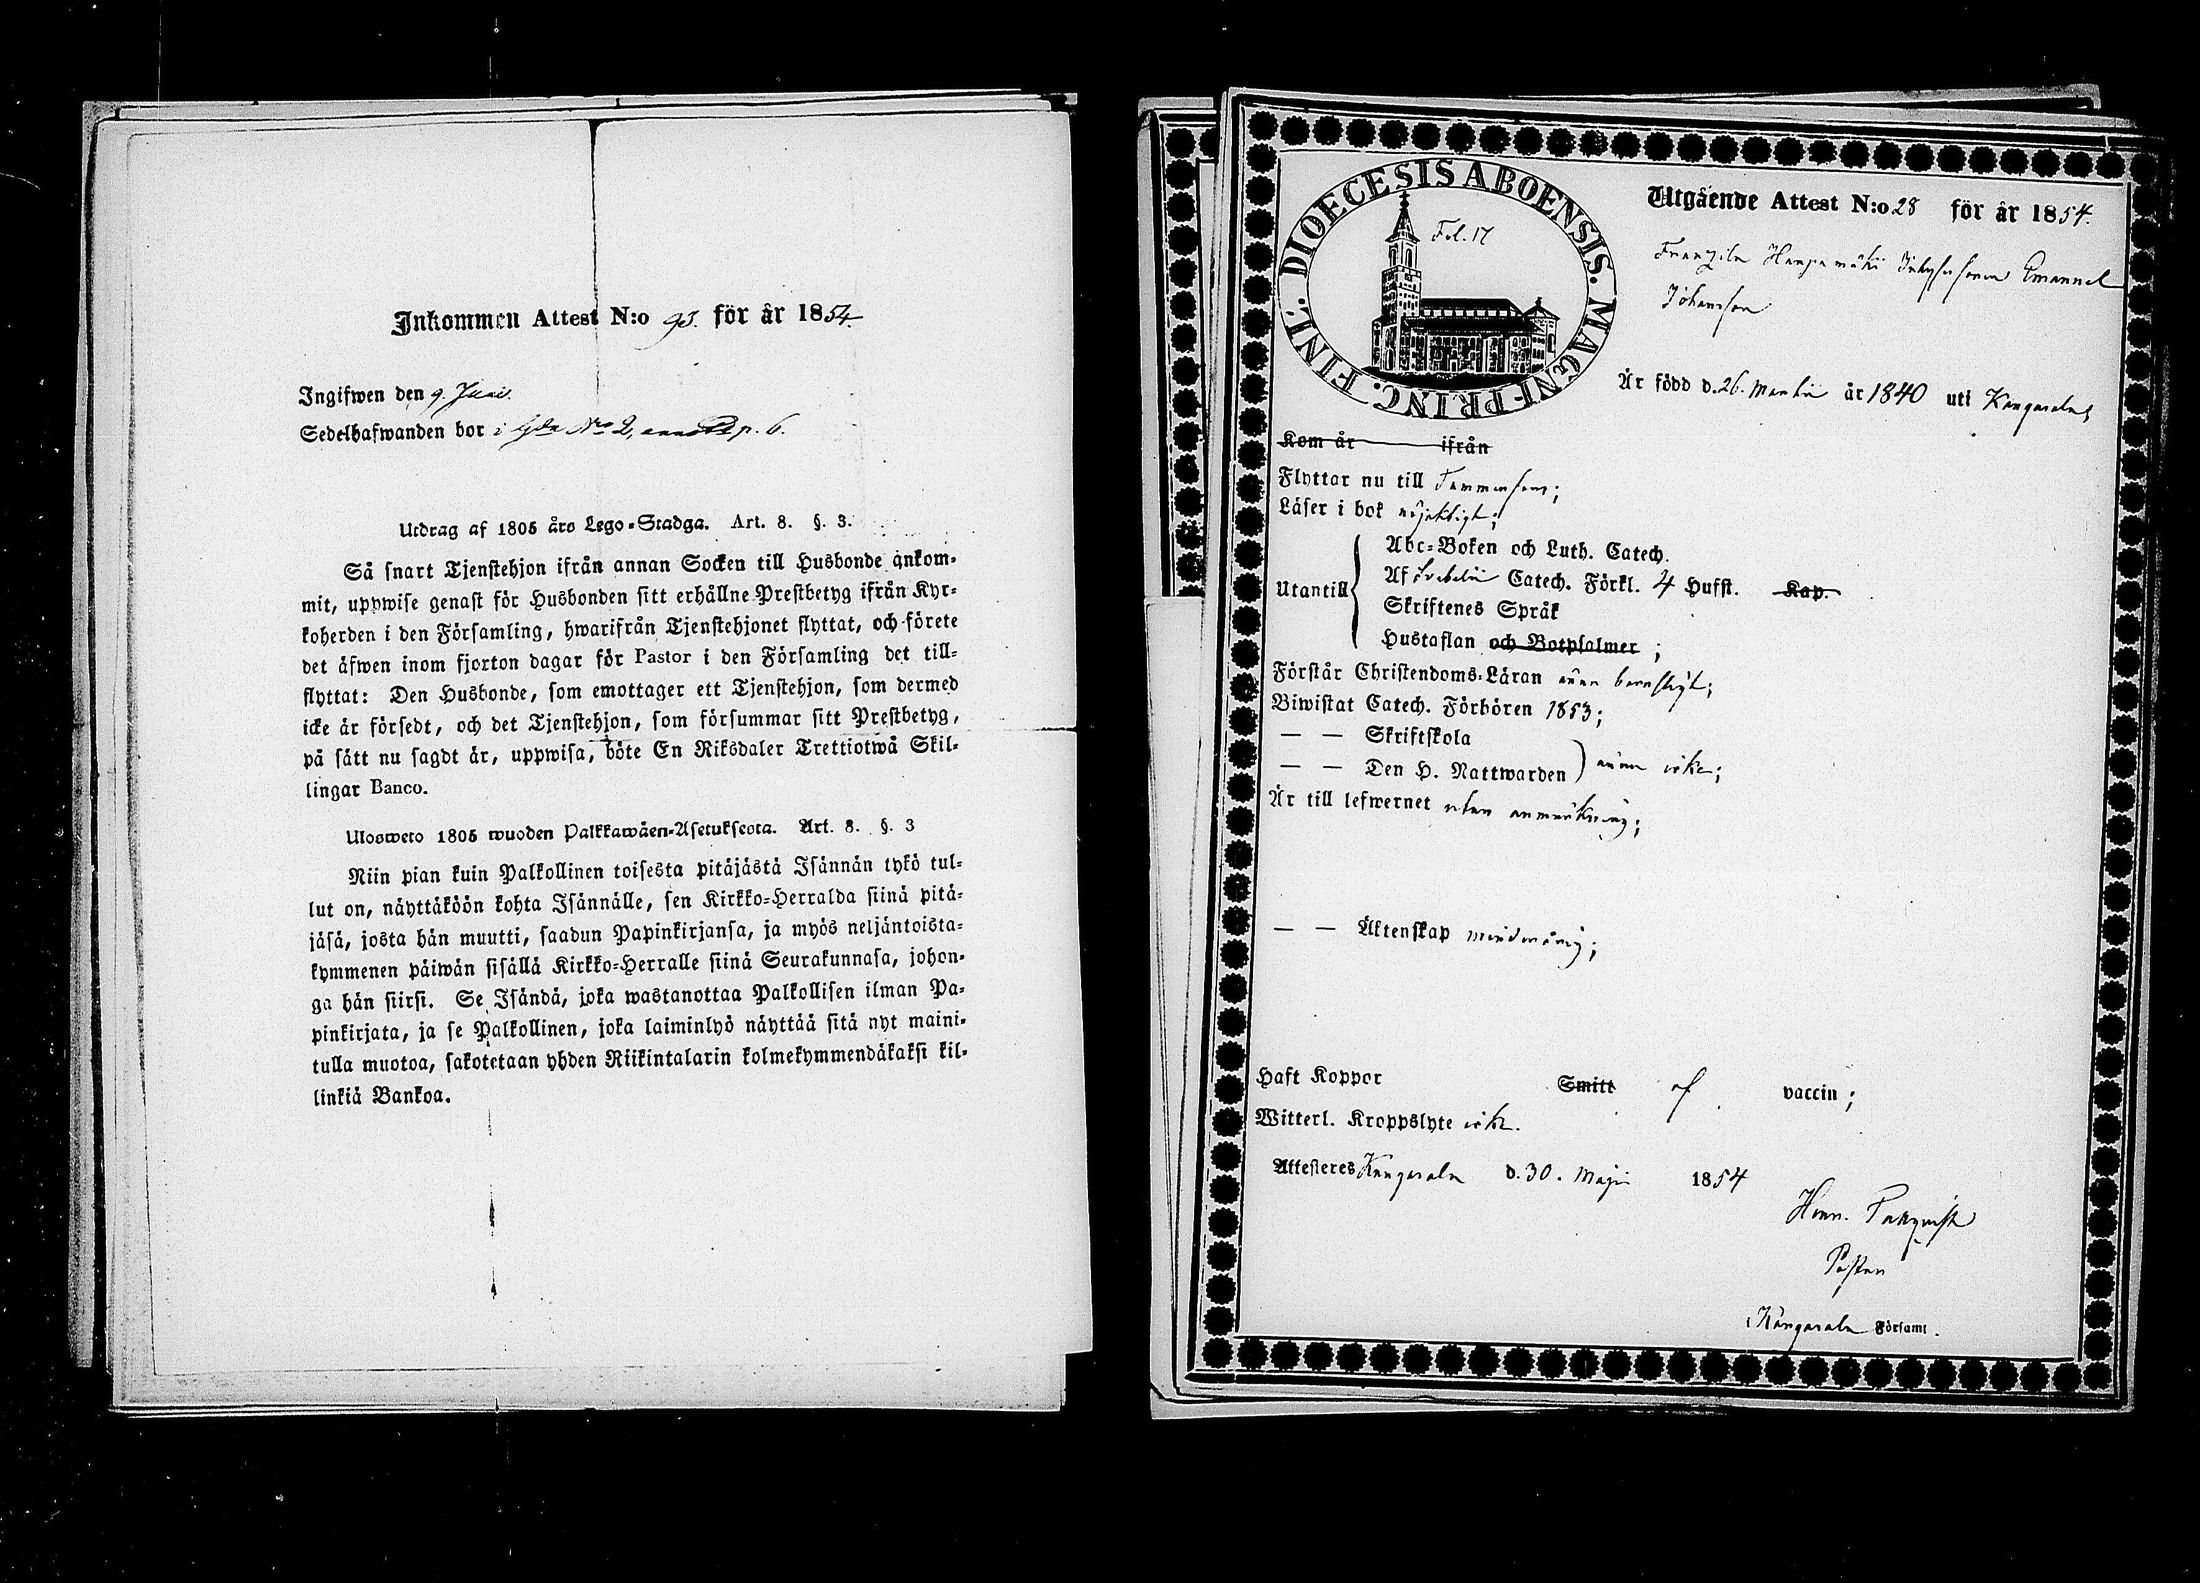 Inkommen Attest N:o 93. för år 1854.
Ingifwen den 9. Juni.
Sedelhafwanden bor i N:o 2, p. 6.
Utdrag af 1805 års Lego-Stadga. Art. 8. §. 3.
Så snart Tjenstehjon ifrån annan Socken till Husbonde ankom-
mit, uppwise genast för Husbonden sitt erhållne Prestbetyg ifrån Kyr-
koherden i den Församling, hwarifrån Tjenstehjonet flyttat, och förete
det äfwen inom fjorton dagar för Pastor i den Församling det till-
flyttat: Den Husbonde, som emottager ett Tjenstehjon, som dermed
icke är försedt, och det Tjenstehjon, som försummar sitt Prestbetyg,
på sätt nu sagdt är, uppwisa, böte En Riksdaler Trettiotwå Skil-
lingar Banco.
Ulosweto 1805 wuoden Palkkawäen-Asetuksesta. Art. 8. §. 3
Niin pian kuin Palkollinen toisesta pitäjästä Isännän tykö tul-
lut on, näyttäköön kohta Isännälle, sen Kirkko-Herralda siinä pitä-
jäsä, josta hän muutti, saadun Papinkirjansa, ja myös neljäntoista-
kymmenen päiwän sisällä Kirkko-Herralle siinä Seurakunnasa, johon-
ga hän siirsi. Se Isändä, joka wastanottaa Palkollisen ilman Pa-
pinkirjata, ja se Palkollinen, joka laiminlyö näyttää sitä nyt maini-
tulla muotoa, sakotetaan yhden Riikintalarin kolmekymmendäkaksi kil-
linkiä Bankoa.
DIOECESIS ABOENSIS. MAGNI PRINC. FINL.
Fol. 17
Utgående Attest N:o 28 för år 1854.
Emanuel
Johansson
Är född d. 26. Martii år 1840 uti Kangasala;
Kom år ifrån
Flyttar nu till Tammerfors;
Läser i bok nöjaktigt;
Utantill
Abc-Boken och Luth. Catech.
Af Svebelii Catech. Förkl. 4 Hufst. Kap.
Skriftenes Språk
Hustaflan och Botpsalmer ;
Förstår Christendoms-Läran ännu barnsligt;
Biwistat Catech. Förhören 1853;
— — Skriftskola
— — Den H. Nattwarden ännu icke;
Är till lefwernet utan anmärkning;
— — Äktenskap minderårig;
Haft Koppor Smitt af vaccin ;
Witterl. Kroppslyte icke.
Attesteres Kangasala d. 30. Maji 1854
Henr.
Pastor
i Kangasala Församl.